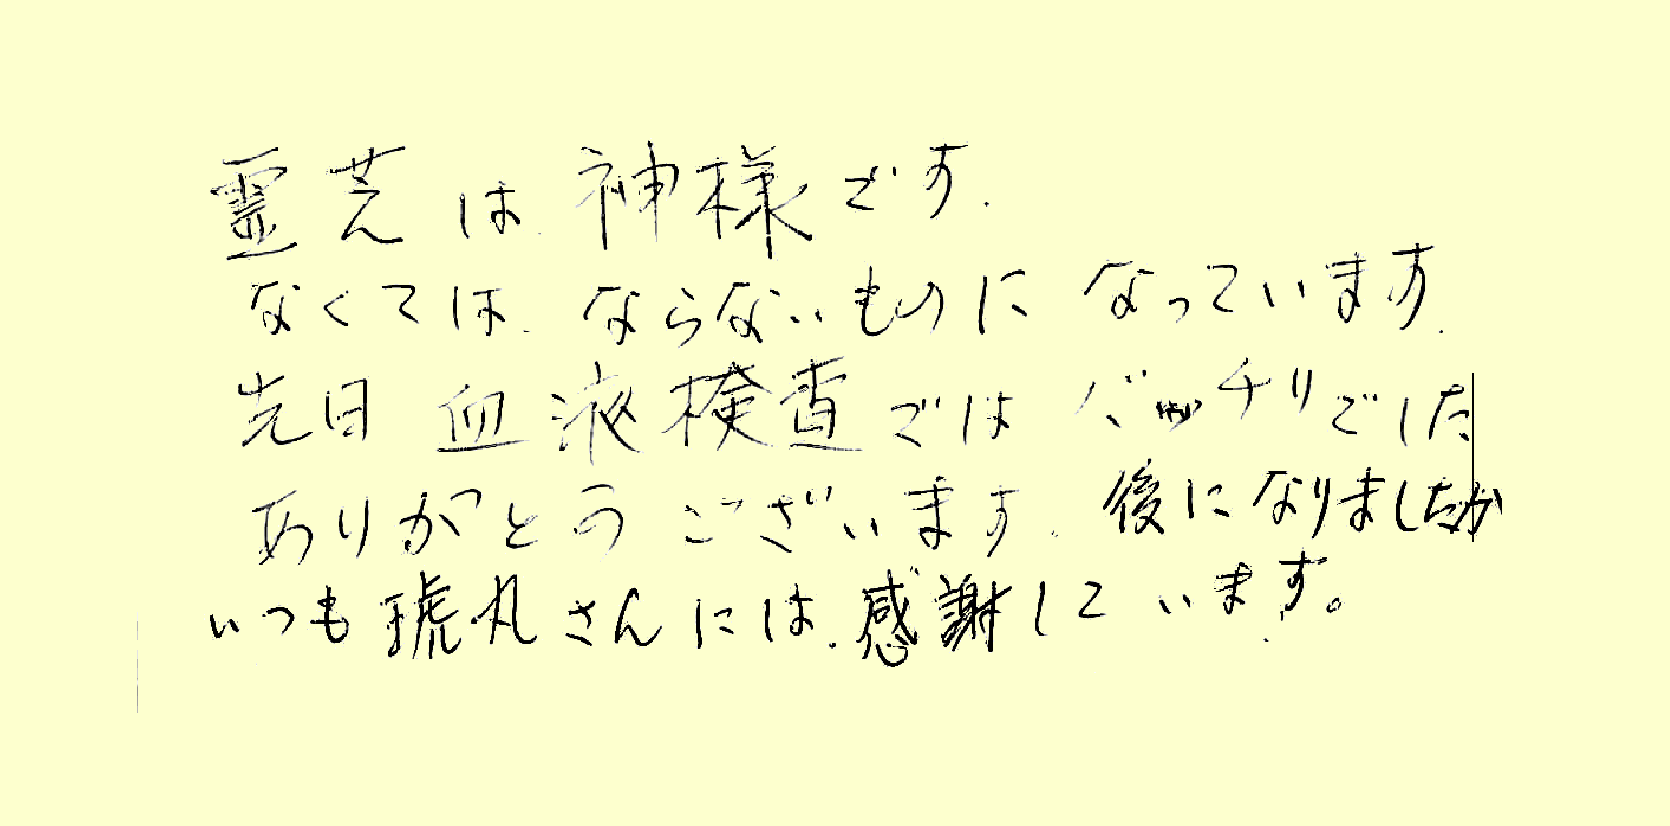 霊芝は神様です.
なくてはならないものになっています.
先日血液検査ではバッチリでした
ありがとうございます. 後になりましたが
いつも琥札さんには感謝しています。